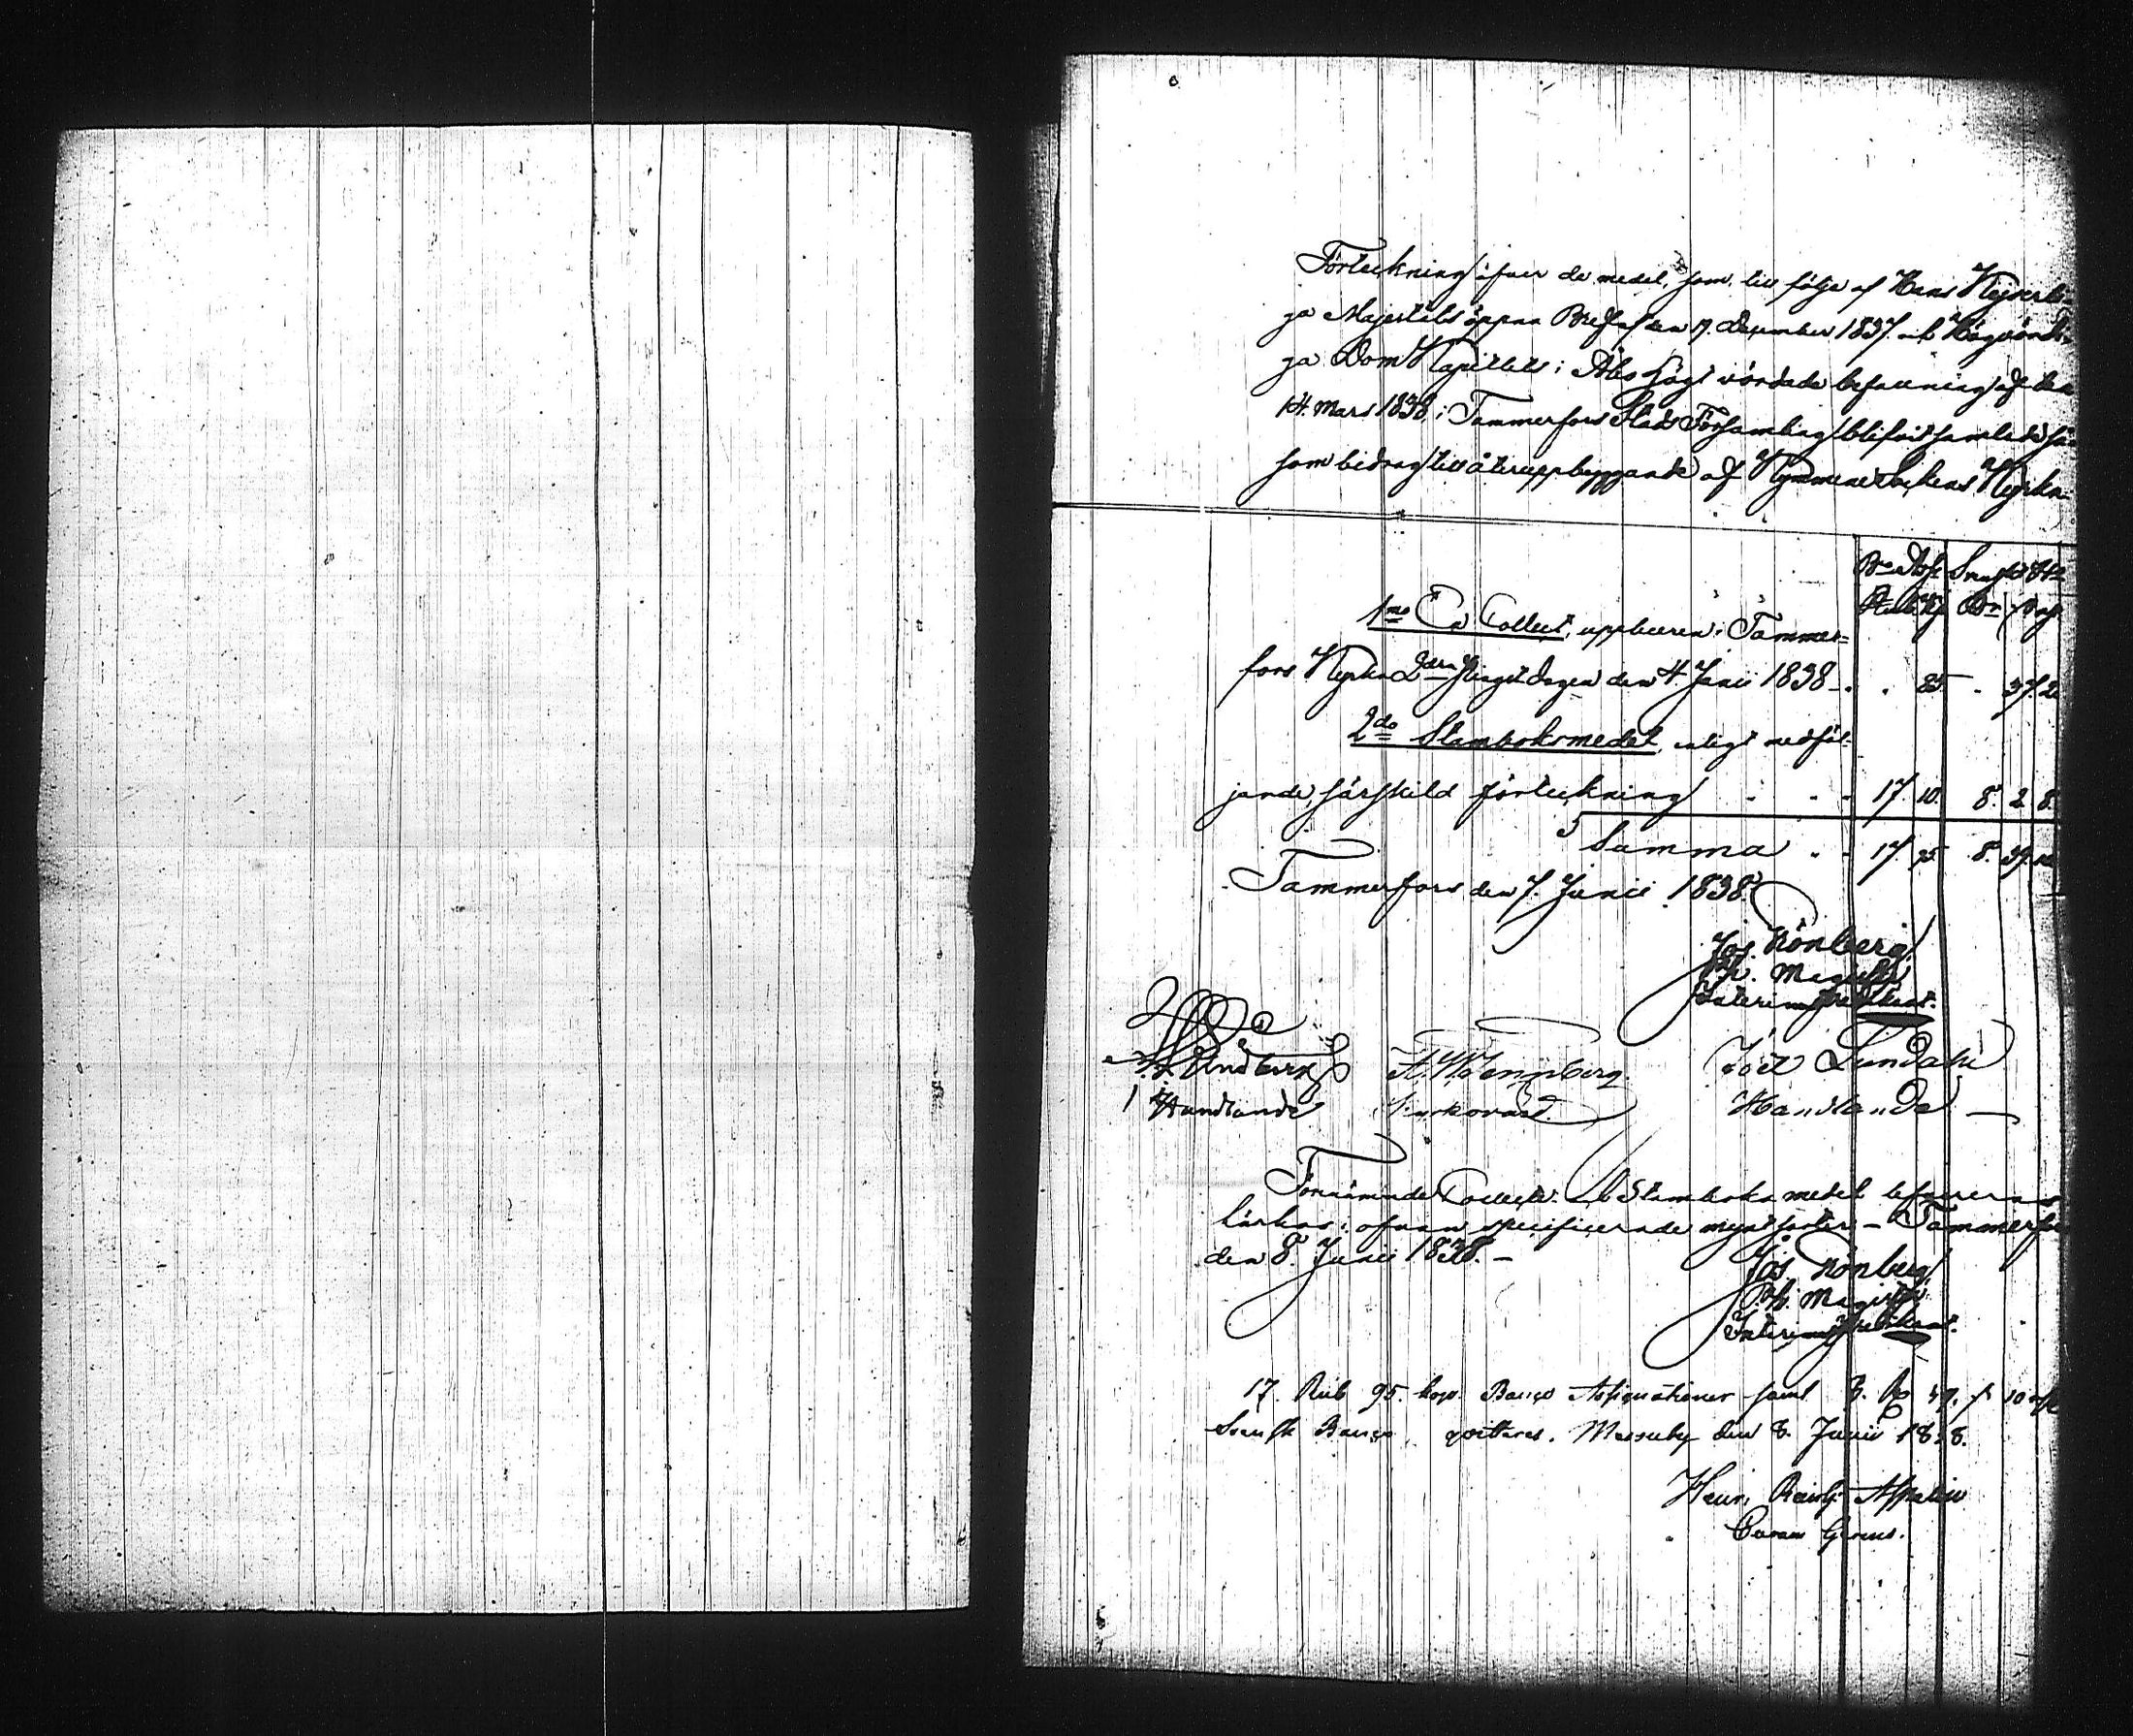 Förteckning öfver de medel, som till följe af Hans Kejserli-
ga Majestäts öppna Bref af den 9. December 1837. och Högvördi-
ga Dom Kapitlets i Åbo högt vördade befallning af den
14. Mars 1838, i Tammerfors Stads Församling blifvit samlade så-
som bidrag till återuppbyggande af Kymmene Sockens Kyrka.
1mo En Collect, uppburen i Tammer-
fors Kyrka 2dra Pingstdagen den 4. Junii 1838 . . 85 - 37. 2
2do Stamboksmedel, enligt medföl-
jande, särskild förteckning . . . 17. 10. 8. 2. 8.
Summa . . 17. 95. 8. 39. 10
Tammerfors den 7. Junii 1838.
Jos. Rönberg
Ph. Magister
Interims Predikant.
Lindberg
Handlande
Joël Lundahl
Handlande
Kyrkovärd.
Förenämnde Collect- och Stamboks medel levereras
härhos i ofvan specificerade myntsorter. - Tammerfors
den 8. Junii 1838. -
Jos. Rönberg
Ph. Magister
Interims Predikant.
17. Rub 95. kop. Banco Assignationer samt 8. 39. 10
Svensk Banco qvitteras. Messuby den 8. Junii 1838.
Henr. Reinh.
Curam Gerens.